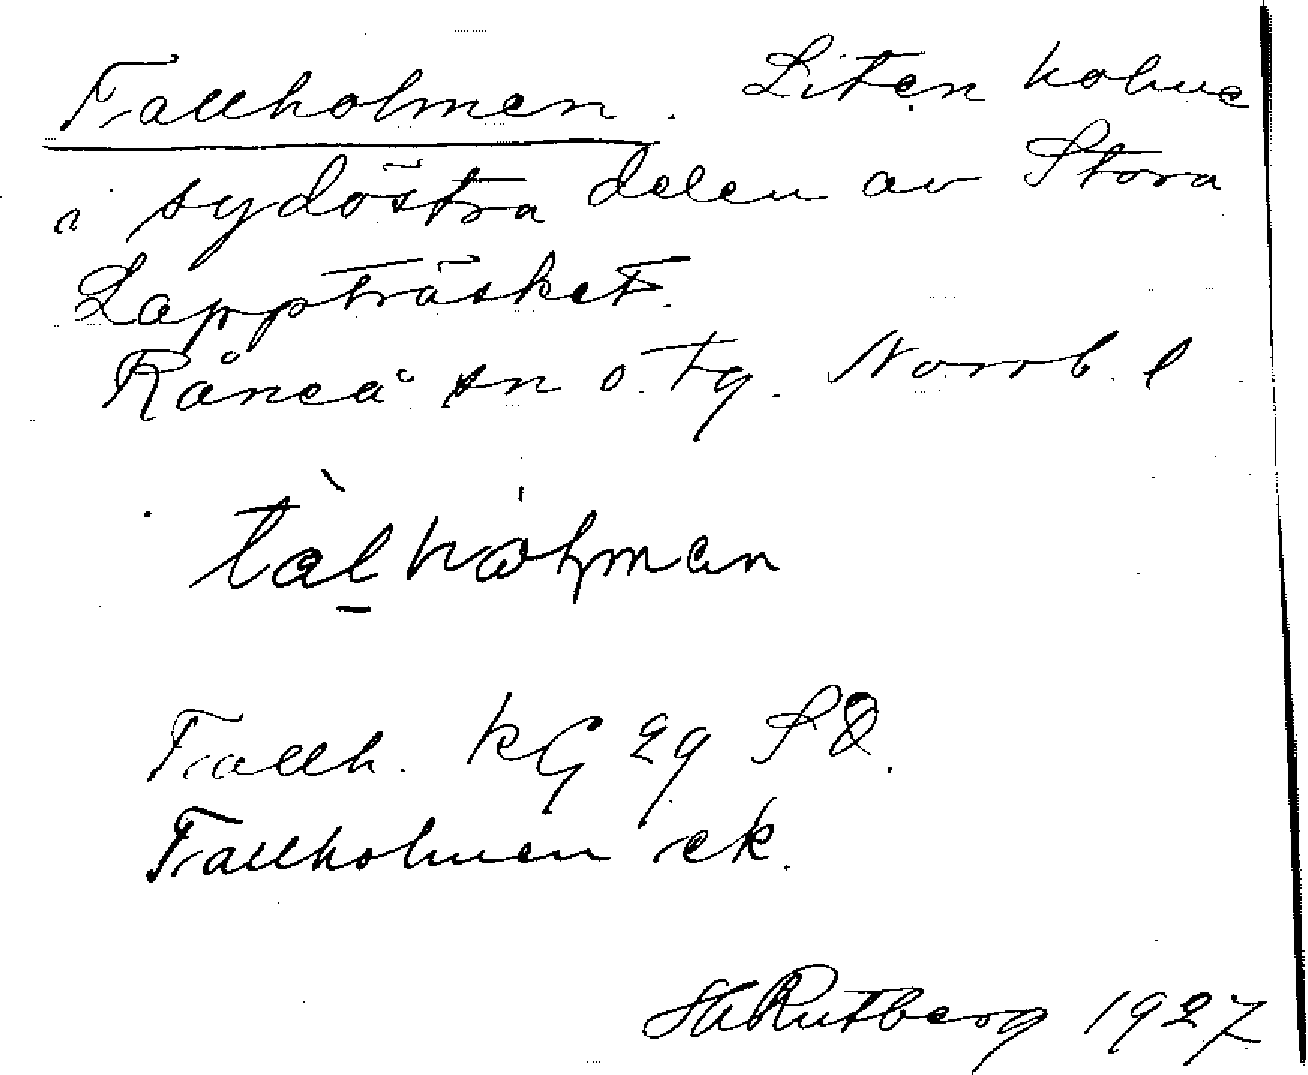 Tallholmen. Liten holme
i sydöstra delen av Stora
Lappträsket.
Råneå sn o. tg. Norrb. l
tàlhólman
Tallh. kG 29 SO.
Tallholmen ek.
HARutberg 1927